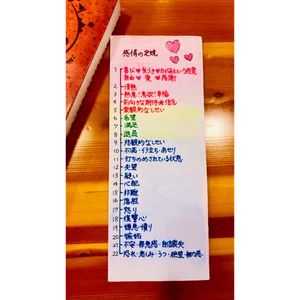 感情の定規
1 喜び♥気づき♥力があるという感覚
自由♥愛♥感謝
2 情熱
3 熱意 意欲 幸福
4 前向きな期待★信念
5 楽観的なしせい
6 希望
7 満足
8 退屈
9 悲観的なしせい
10 不満・イライラ・あせり
11 打ちのめされている状態
12 失望
13 疑い
14 心配
15 非難
16 落胆
17 怒り
18 復讐心
19 嫌悪・憤り
20 嫉妬
21 不安・罪悪感・自信喪失
22 恐れ・悲しみ・うつ・絶望・無力感